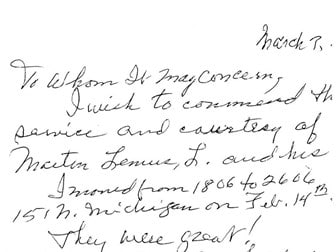 March 7,
To Whom It May Concern,
I wish to commend th
service and courtesy of
Martin Lemus, L. and his
I moved from 1806 to 2606,
151 N. Michigan on Feb. 14th.
They were great!